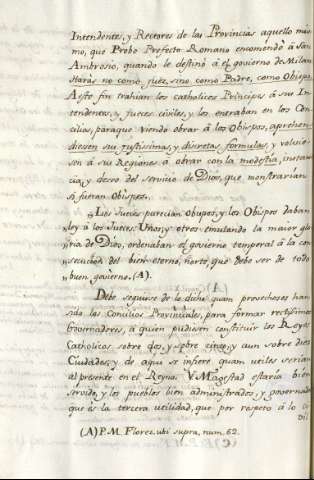 Intendentes, y Rectores de las Provincias aquello mis-
mo, que Probo Prefecto Romano encomendó à San
Ambrosio, quando le destinó à el govierno de Milan
Harás no como juez, sino como Padre, como Obispo.
A este fin trahian los catholicos Principes à sus In-
tendentes, y Jueces civiles, y los entraban en los Con-
cilios, para que viendo obrar à los Obispos, aprehen-
diesen sus justisimas, y discretas formulas, y volvie-
sen à sus Regiones à obrar con la modestia, instan-
cia, y deseo del servicio de Dios, que monstrarian
si fueran Obispos.
„Los Jueces parecian Obispos, y los Obispos daban
„ley à los Jueces: Unos, y otros emulando la maior glo
„ria de Dios, ordenaban el govierno temporal à la con
„secucion del bien eterno, norte, que debe ser de todo
„buen govierno. (A).
Debe seguirse de lo dicho quam provechosos han
sido los Concilios Provinciales, para formar rectisimos
Governadores, à quien pudiesen constituir los Reyes
Catholicos sobre dos, y sobre cinco, y aun sobre diez
Ciudades, y de aqui se infiere quam utiles serian
al presente en el Reyno. V. Magestad estaria bien
servido, y los pueblos bien administrados, y governados
que es la tercera utilidad, que por respeto à lo ci
vil
(A) P. M. Florez, ubi supra, num. 62.